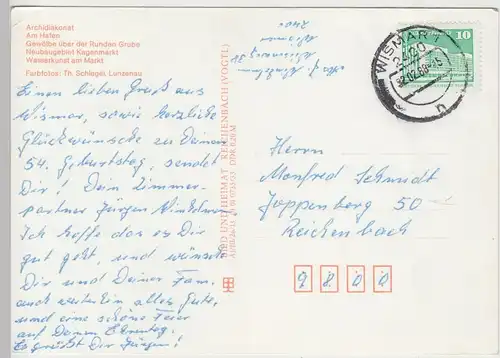 Archidiakonat
Am Hafen
Gewölbe über der Runden Grube
Neubaugebiet Kagenmarkt
Wasserkunst am Markt
Farbfotos: Th. Schlegel, Lunzenau
Einen lieben Gruß aus
Wismar, sowie herzliche
Glückwünsche zu Deinem
54. Geburtstag sendet
Dir! Dein Zimmer-
partner Jürgen
Ich hoffe das es Dir
gut geht, und wünsche
Dir und Deiner Fam.
auch weiterhin alles Gute,
und eine schöne Feier
an Deinem Ehrentag.
Es grüßt Dir Jürgen!
BILD UND HEIMAT REICHENBACH (VOGTL)
Wismar
2400
WISMAR 1
2400
10
Herrn
Manfred Schmidt
Joppenberg 50
Reichenbach
9800